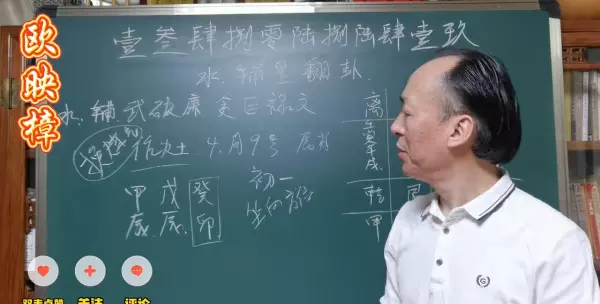 欧映樟
壹叁肆捌零陆捌陆肆壹玖
水辅星翻卦
水:辅武破廉贪巨禄文
4月9号
初一
甲戊癸
辰辰卯
离
寅午戌
乾
甲
G
双击点赞 关注 评论